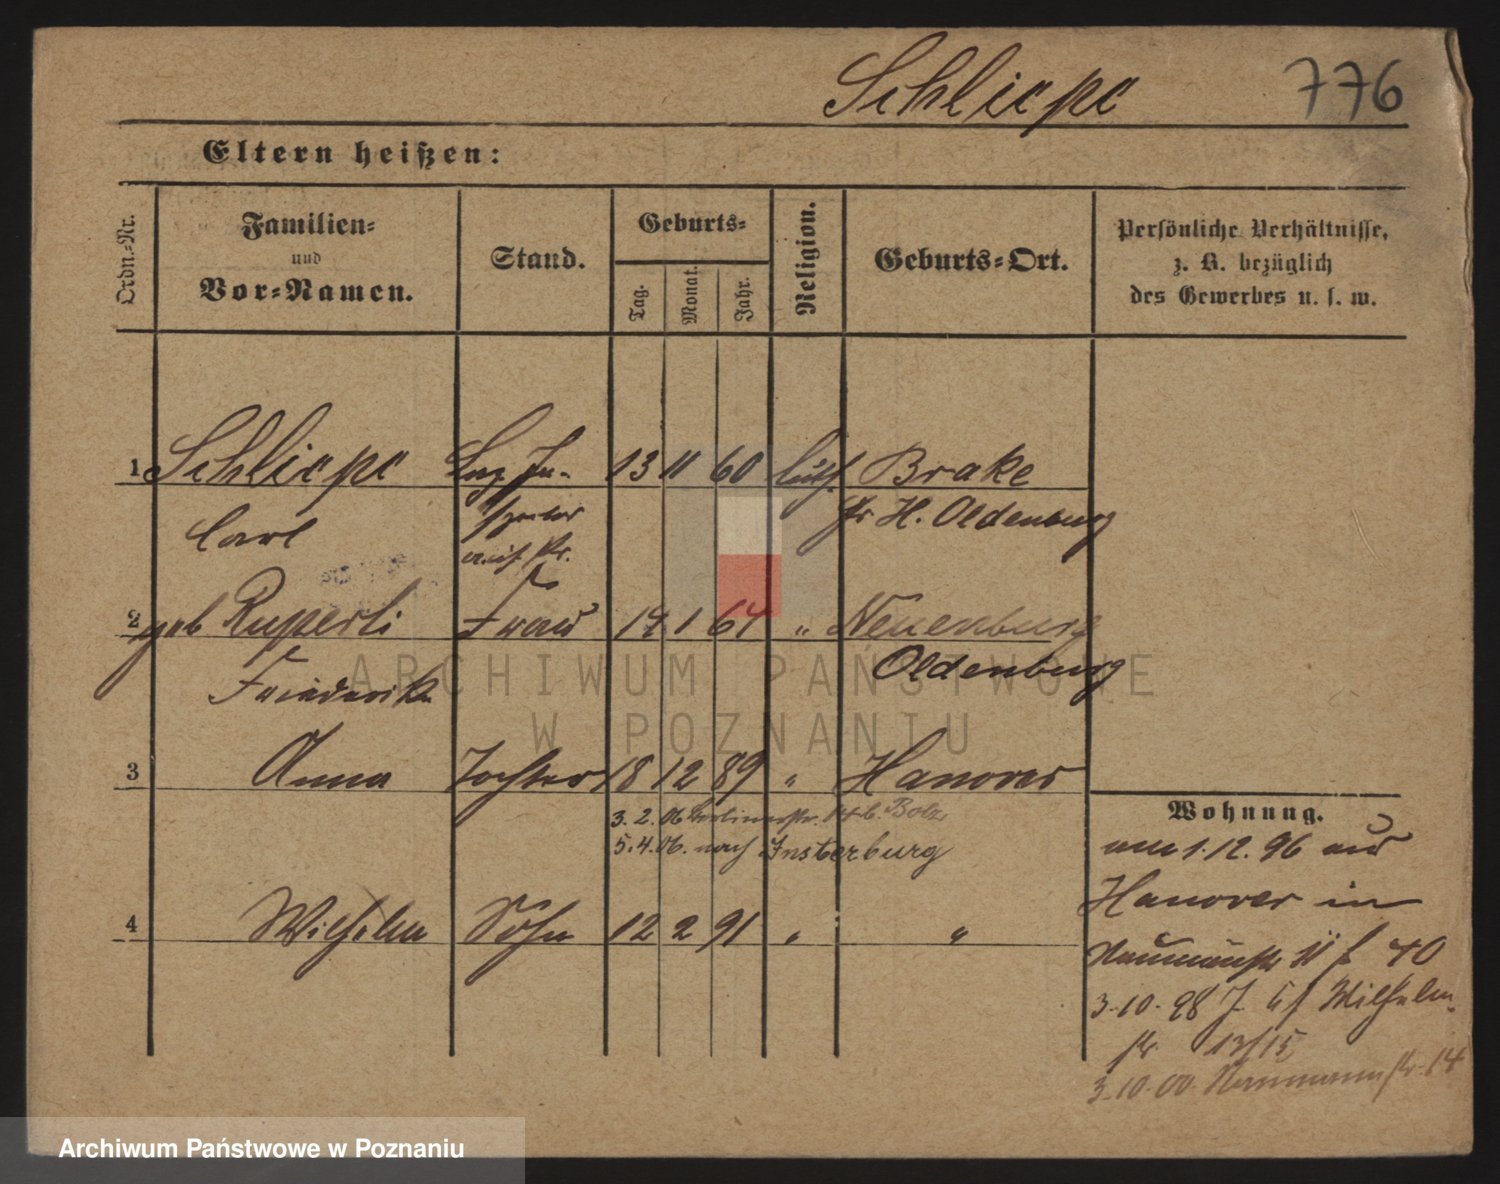 Schliepe 776
Eltern heißen:
Ordn.-Nr.
Familien-
und
Vor-Namen.
Stand.
Geburts-
Tag.
Monat.
Jahr.
Religion.
Geburts-Ort.
Persönliche Verhältnisse,
z. B. bezüglich
des Gewerbes u. s. w.
1 Schliepe 13 11 60 luth. Brake
Carl
Gr. H. Oldenburg
2 geb Ruperti Frau 14 1 64 " Neuenburg
Friederike Oldenburg
3 Anna Tochter 18 12 89 " Hanover
3. 2. 06 Berlinerstr. Bolz
5. 4. 06. nach Insterburg
4 Wilhelm Sohn 12 2 91 " "
Wohnung.
am 1. 12. 96 aus
Hanover in
Naumannstr 40
3.10.98 Wilhelm
str. 13/15
3.10.00. Naumannstr. 14
ARCHIWUM PAŃSTWOWE
W POZNANIU
Archiwum Państwowe w Poznaniu